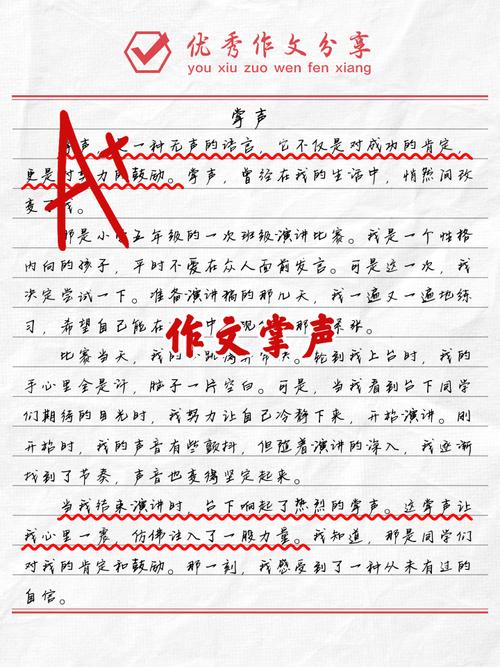 优秀作文分享
you xiu zuo wen fen xiang
掌声
A+
声，是一种无声的语言，它不仅是对成功的肯定，
更是对努力的鼓励。掌声，曾经在我的生活中，悄然间改
变了我。
那是小学五年级的一次班级演讲比赛。我是一个性格
内向的孩子，平时不爱在众人面前发言。可是这一次，我
决定尝试一下。准备演讲稿的那几天，我一遍又一遍地练
习，希望自己能在 中 现 紧张。
作文掌声
比赛当天，我的心跳 轮到我上台时，我的
手心里全是汗，脑子一片空白。可是，当我看到台下同学
们期待的目光时，我努力让自己冷静下来，开始演讲。刚
开始时，我的声音有些颤抖，但随着演讲的深入，我逐渐
找到了节奏，声音也变得坚定起来。
当我结束演讲时，台下响起了热烈的掌声。这掌声让
我心里一震，仿佛注入了一股力量。我知道，那是同学们
对我的肯定和鼓励。那一刻，我感受到了一种从未有过的
自信。